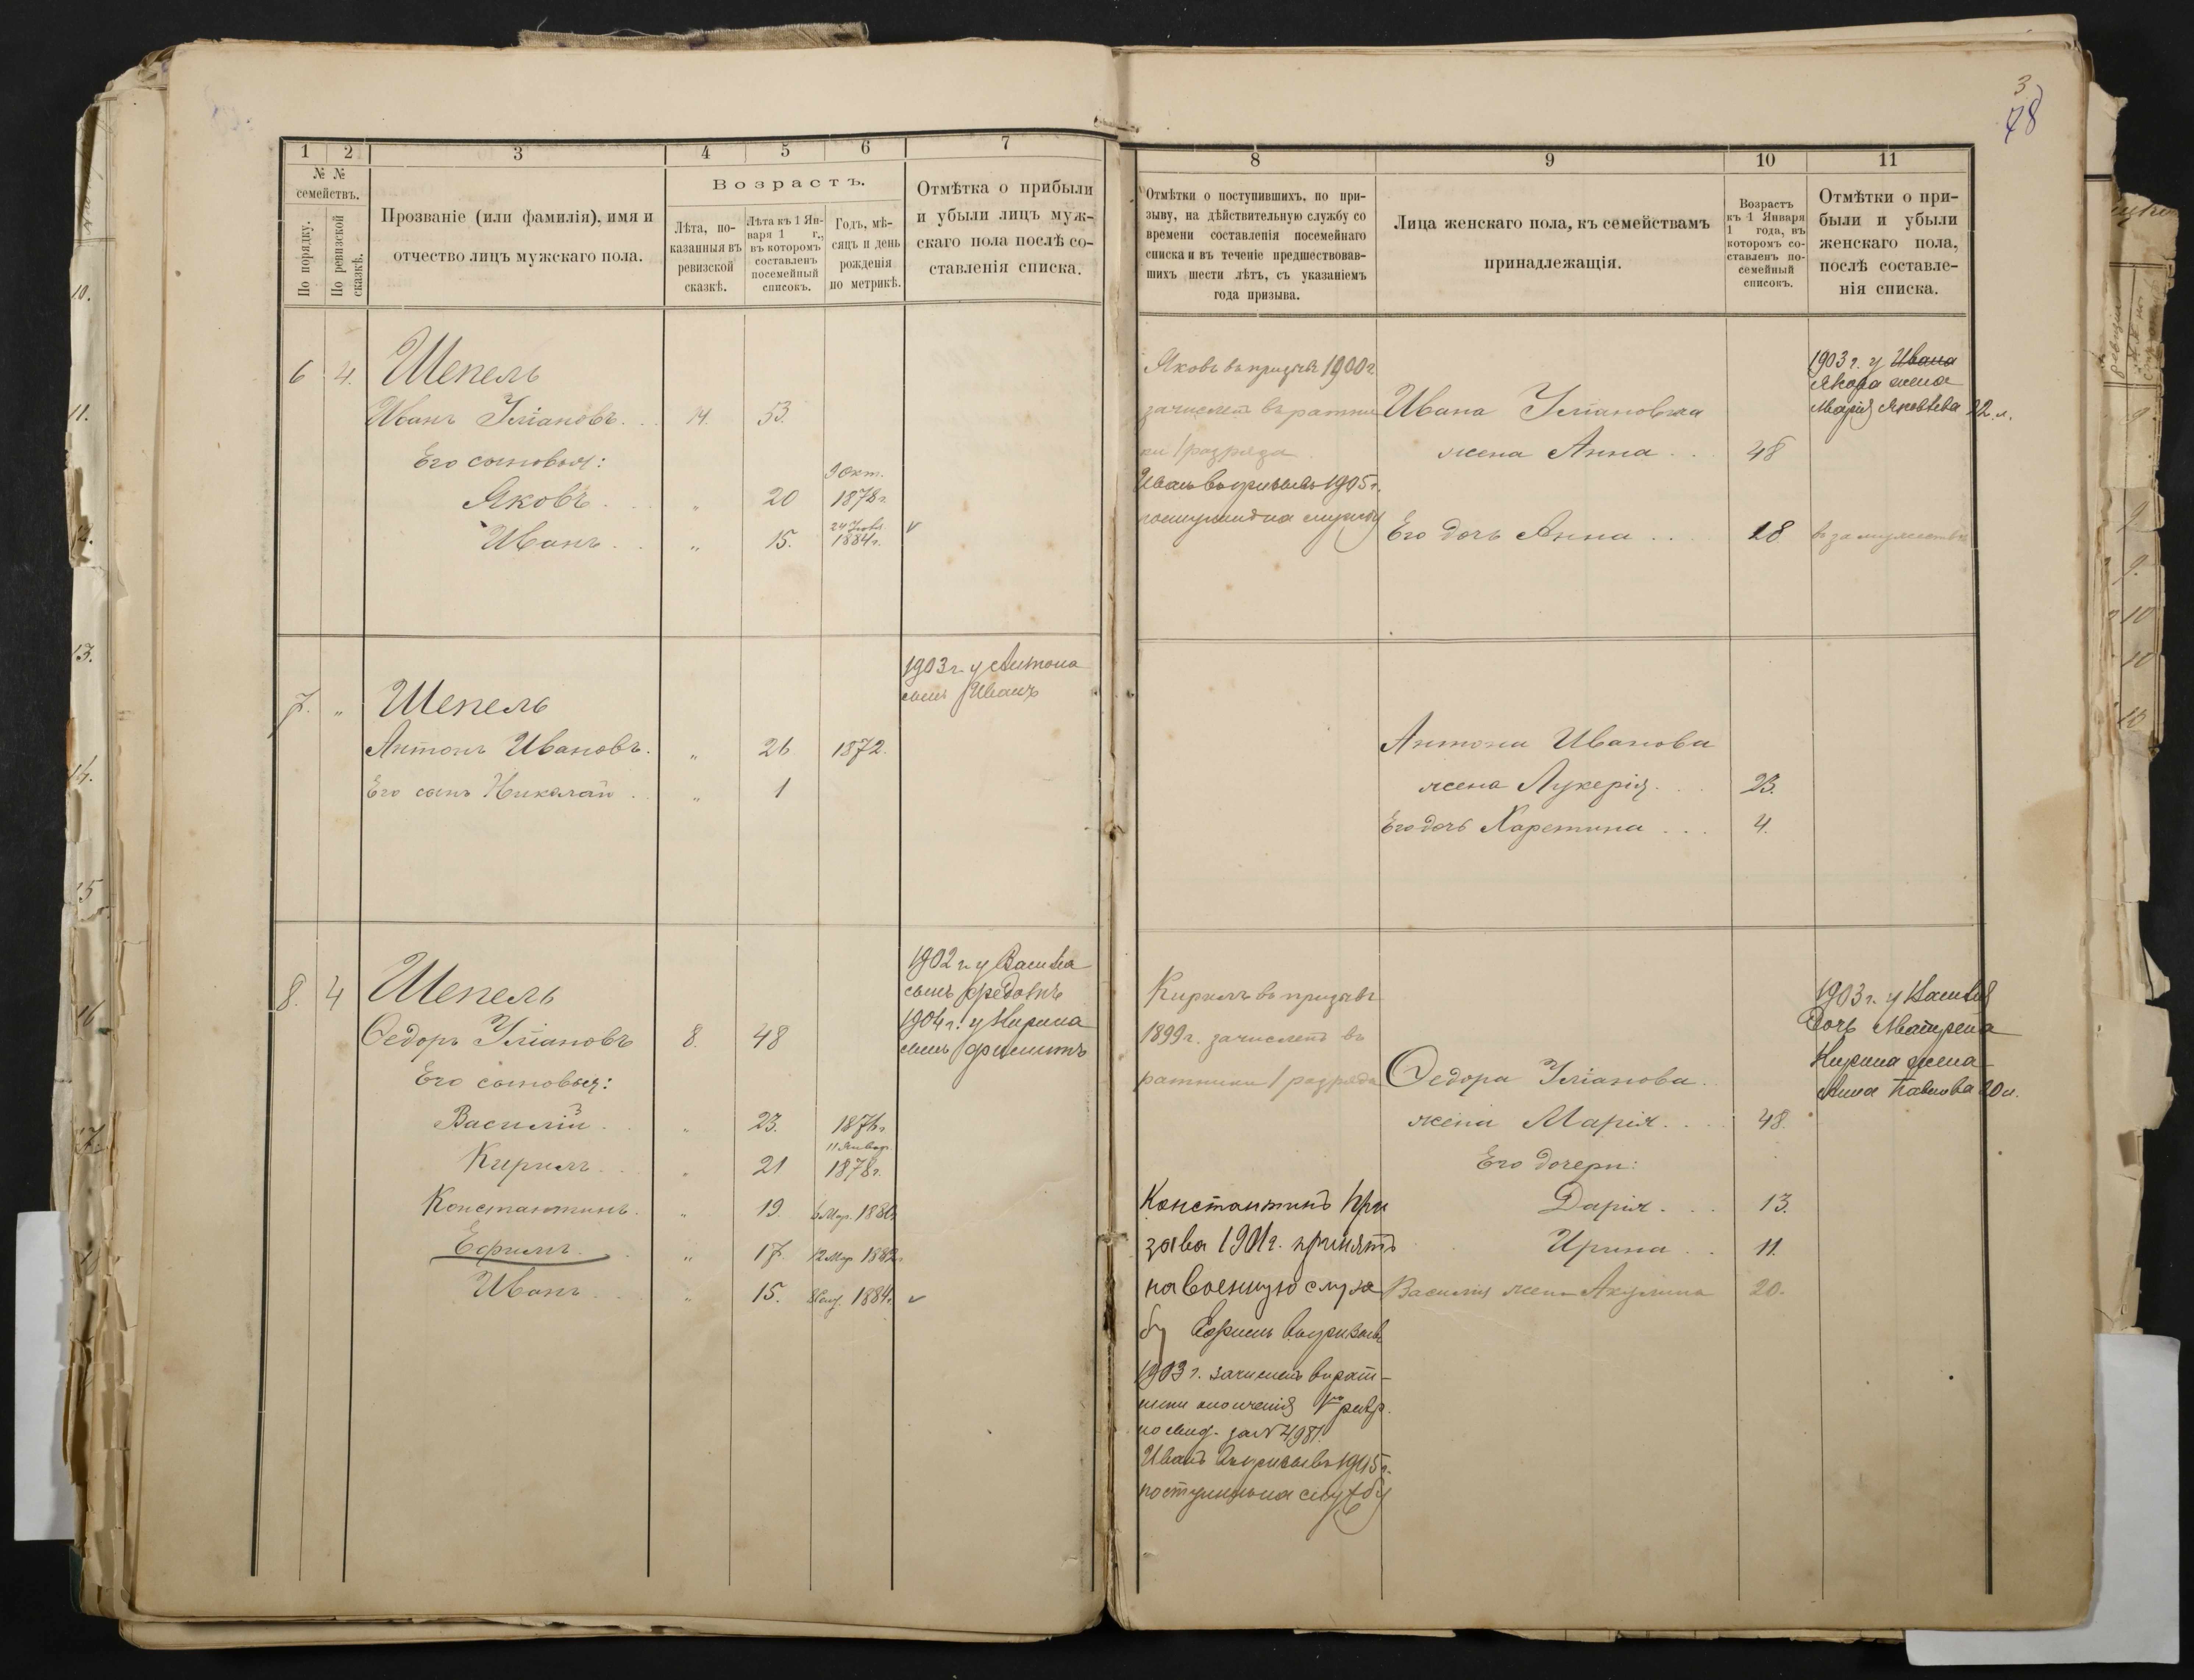 3
78
1 2 3 4 5 6 7
№ №
семействъ.
По порядку.
По ревизской
сказкѣ.
Прозваніе (или фамилія), имя и
отчество лицъ мужскаго пола.
Возрастъ.
Лѣта, по-
казанныя въ
ревизской
сказкѣ.
Лѣта къ 1 Ян-
варя 1 г.,
въ которомъ
составленъ
посемейный
списокъ.
Годъ, мѣ-
сяцъ и день
рожденія
по метрикѣ.
Отмѣтка о прибыли
и убыли лицъ муж-
скаго пола послѣ со-
ставленія списка.
6 4. Шепель
Иванъ Уліановъ. 14. 53.
Его сыновья:
9 окт.
Яковъ. " 20 1878 г.
1884 г.
Иванъ. " 15.
1903 г. у Антона
сынъ Иванъ
7. " Шепель
Антонъ Ивановъ. " 26 1872.
Его сынъ Николай. " 1
1902 г. у Василія
сынъ
8. 4 Шепель
1904 г. у Кирила
сынъ
Ѳедоръ Уліановъ 8. 48
Его сыновья:
Василій. " 23. 1876 г.
11 Январ.
Кирилъ. " 21 1878 г.
Константинъ. " 19. 6 Мар. 1880
Ефимъ. " 17. 12 Мар. 1882
Иванъ. " 15. 1884.
8 9 10 11
Отмѣтки о поступившихъ, по при-
зыву, на дѣйствительную службу со
времени составленія посемейнаго
списка и въ теченіе предшествовав-
шихъ шести лѣтъ, съ указаніемъ
года призыва.
Лица женскаго пола, къ семействамъ
принадлежащія.
Возрастъ
къ 1 Января
1 года, въ
которомъ со-
ставленъ по-
семейный
списокъ.
Отмѣтки о при-
были и убыли
женскаго пола,
послѣ составле-
нія списка.
Яковъ въ призывъ 1900 г
зачисленъ въ ратни
ки 1 разряда
Иванъ въ призывъ 1905 г.
поступилъ на службу
Ивана Уліановъ
жена Анна. 48
Его дочь Анна. 18 въ замужествѣ
1903 г. у Ивана
Якова жена
Марія Яковлева 22 л.
Антона Иванова
жена Лукерія. 23.
Его дочь Харетина. 4.
Кирилъ въ призывъ
1899 г. зачисленъ въ
ратники 1 разряда
Ѳедора Уліанова.
жена Марія. 48.
Его дочери:
Дарія. 13.
Ирина. 11.
Василія жена Акулина 20.
1903 г. у Василія
дочь Матрена
Кирила жена
Анна Павлова 20 л.
Константинъ при
зыва 1901 г. принятъ
на военную служ
бу Ефимъ въ призывъ
1903 г. зачисленъ въ рат-
ники ополченія 1го разр.
за № 4981.
Иванъ въ призывъ 1905 г.
поступилъ на службу